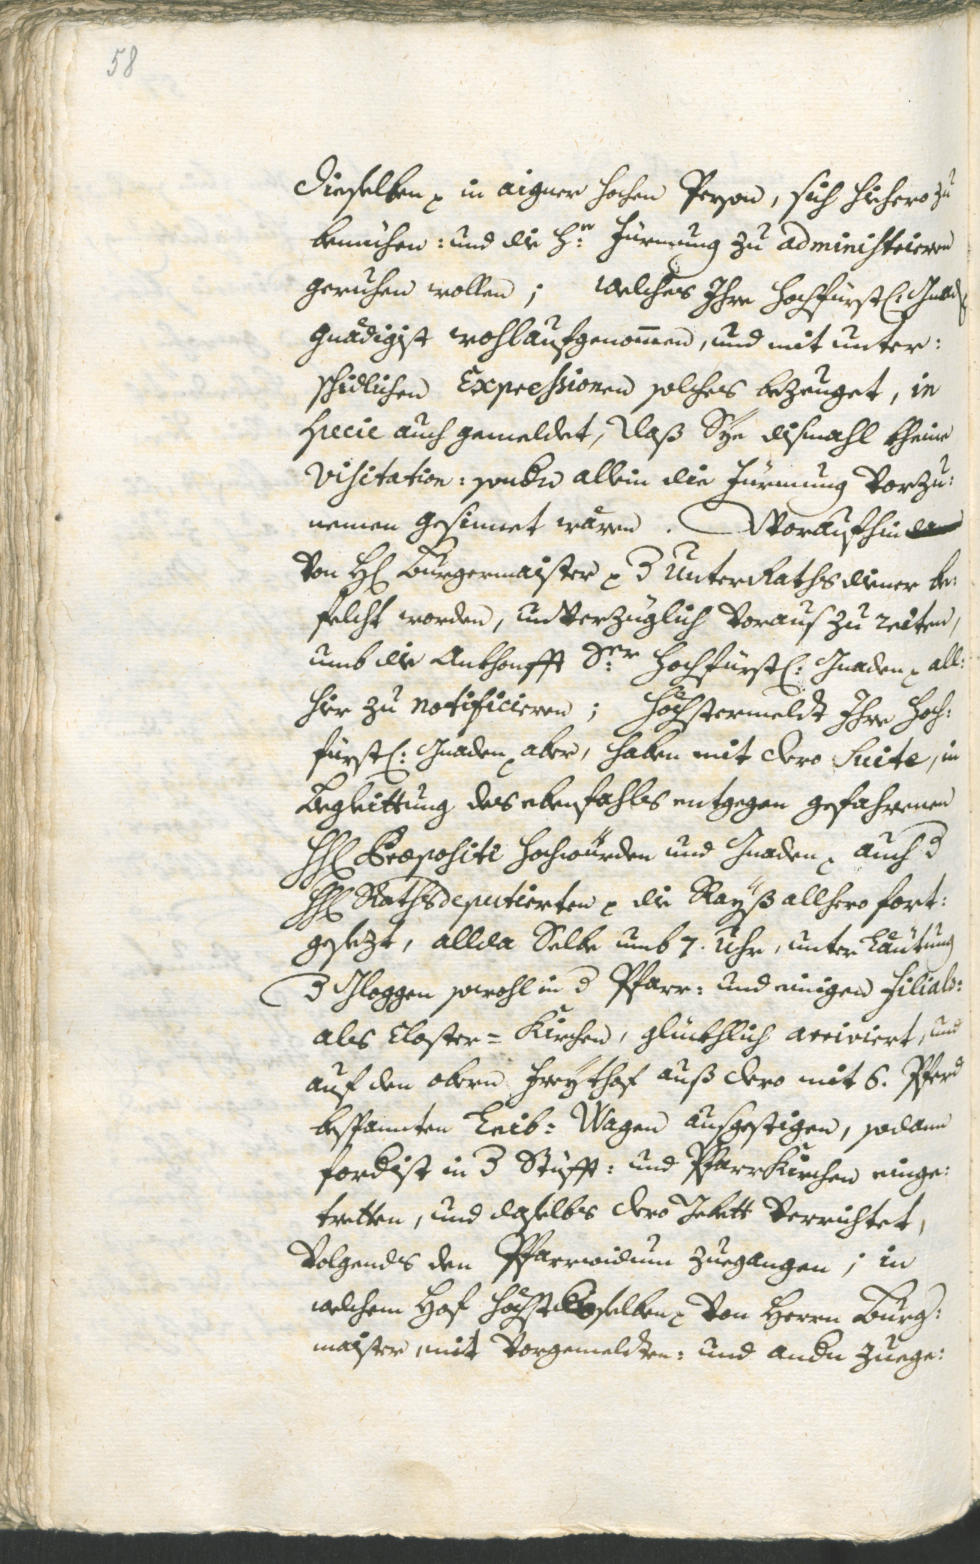 58
dieselben in aigner hochen Person, sich hiehero zu
bemühen: und die H: Fürmung zu administrieren
geruhen wollen; welches Ihre hochfürstl: Gnad
gnädigist wohlaufgenommen, und mit unter:
schidlichen Expressionen solches bezeuget, in
specie auch gemeldet, daß Sÿe dismahl kheine
visitation: sondern allein die Fürmung vorzu:
nemen gesinnet wären. Woraufhin
von H Burgermaister 3 Unter Rathsdiener be:
felcht worden, unverzüglich voraus zu reiten,
umb die Ankhonfft Sr hochfürstl: Gnaden all:
hier zu notificieren; höchstermeldt Ihre hoch:
fürstl: Gnaden aber, haben mit dero Suite, in
Begleittung des ebenfahls entgegen gefahrenen
H Præpositi hochwürden und Gnaden auch d
H Rathsdeputierten die Rayß allhero fort:
gesezt, allda Selbe umb 7. Uhr, unter Läutung
d Gloggen sowohl in d Pfarr: und einigen Filials:
als Closter= Kirchen, glückhlich arriviert, und
auf den obern Freÿthof auß dero mit 6. Pferd
bespannten Leib: Wagen ausgestigen, sodann
fordist in d Stüfft: und Pfarrkirchen einge:
tretten, und daselbs dero Gebett verrichtet,
volgends den Pfarrwidum zuegangen; in
welchem Hof höchstdieselben von Herrn Burg:
maister, mit vorgemeldten: und andern zuege: